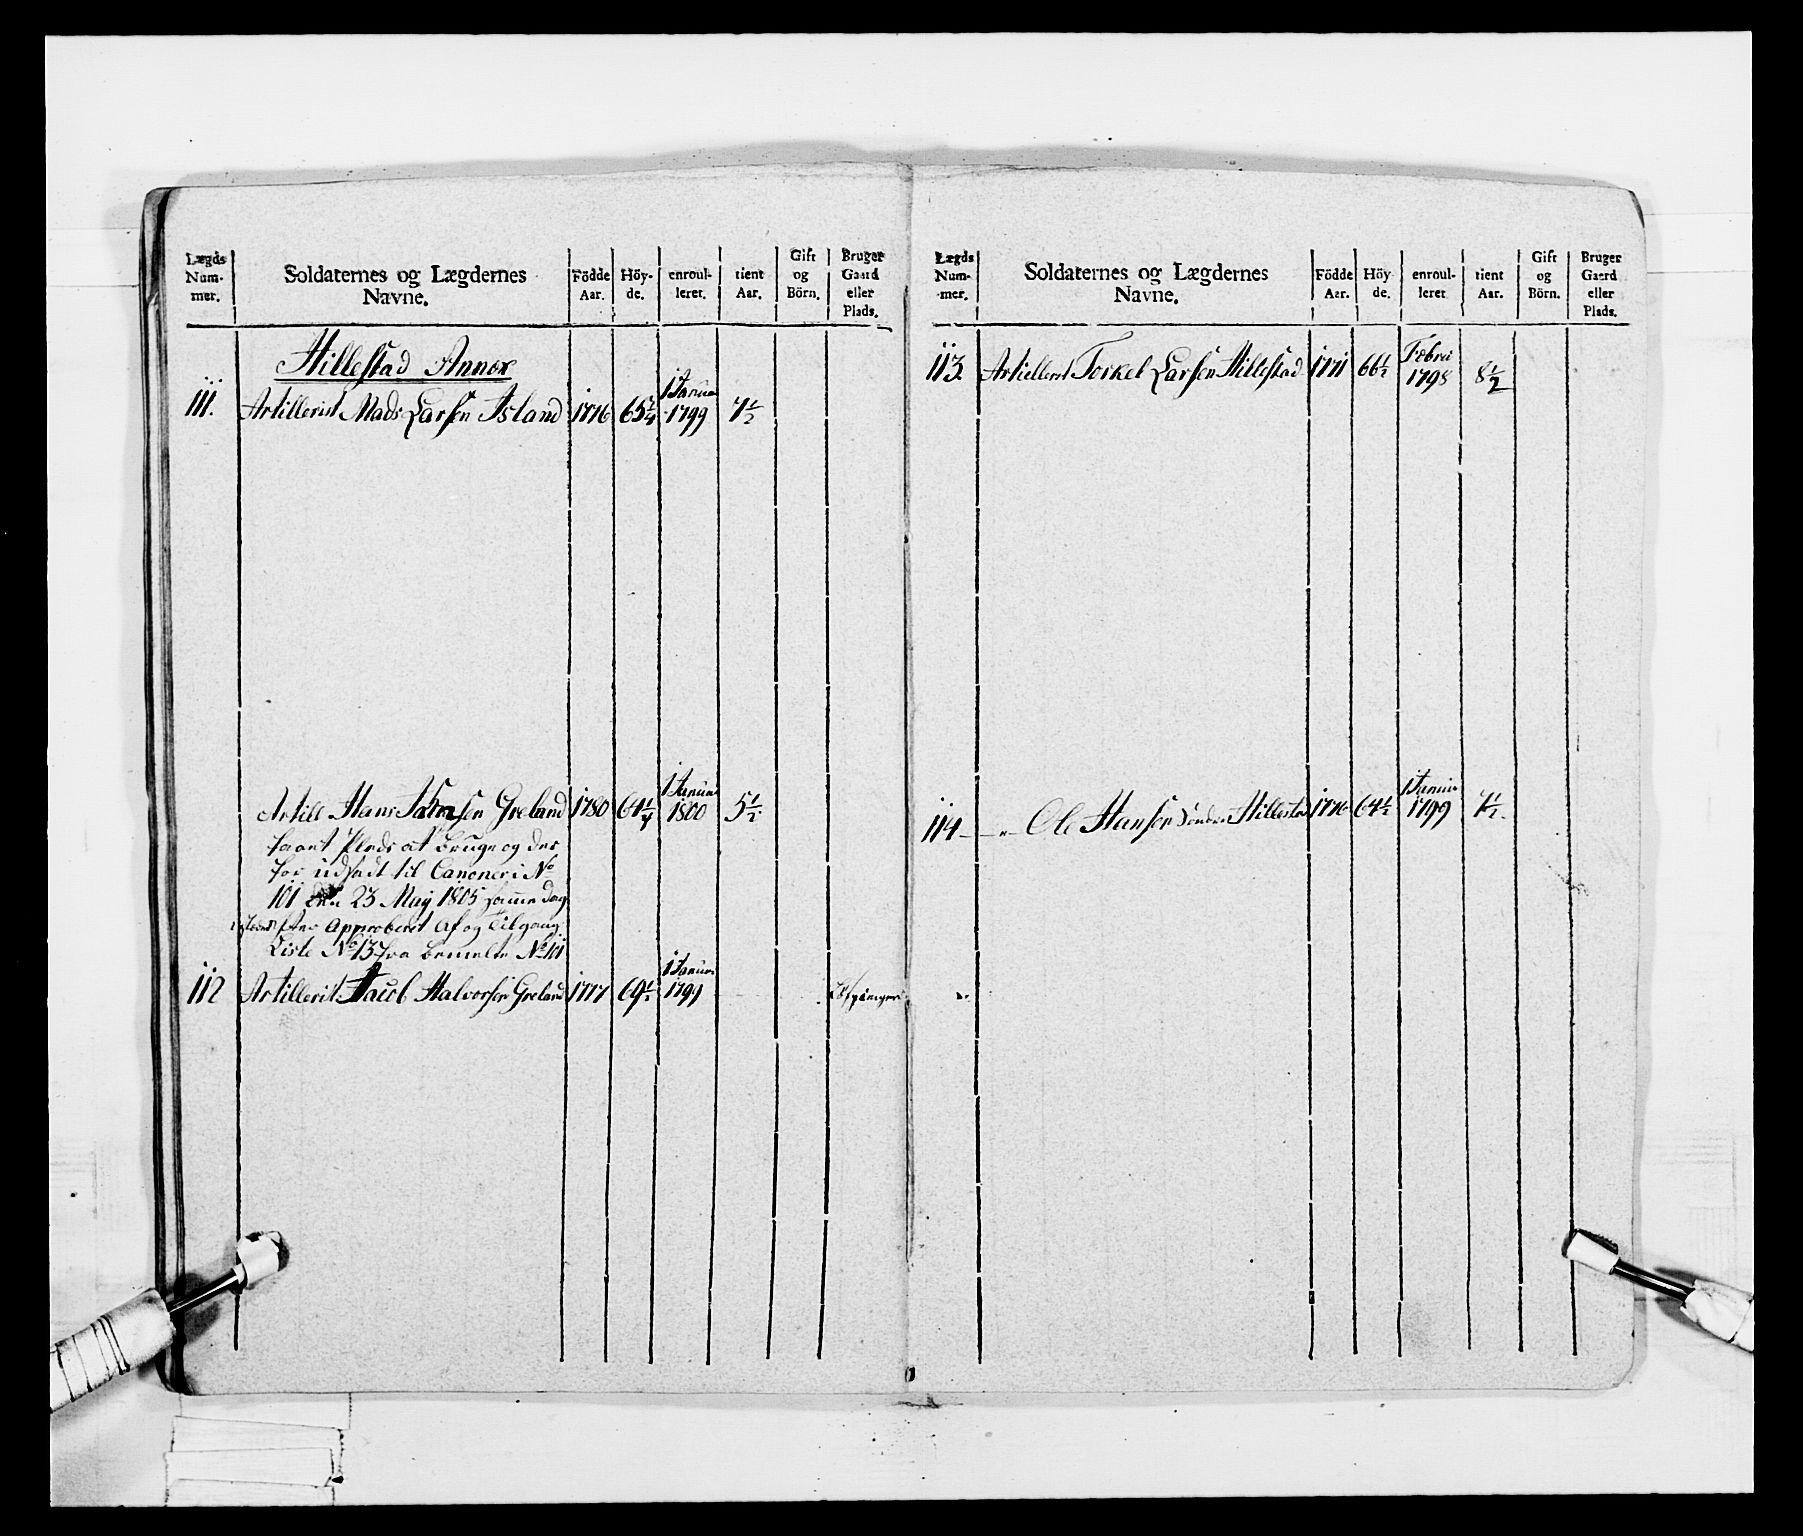 Lægds Num- mer. Soldaternes og Lægdernes Navne. Födde Aar. Höy- de. enroul- leret. tient Aar. Gift og Börn. Bruger Gaard eller Plads.
Hillestad Annex
111. Artillerist Mads Larsen Island 1776 65 3/4 1 Janua 1799 7 1/2
Artill Hans Jahnsen Greland 1780 64 1/4 1 Janua 1800 5 1/2
faaet Plads at bruge og der
for udsadt til Canoneri No
101 den 23 May 1805 samme dag
efter Approberet Af og Tilgang
Liste No 13 fra bemelte No 101
112 Artillerist Jacob Halvorsen Greland 1777 69 1/2 1 Janua 1799
Lægds Num- mer. Soldaternes og Lægdernes Navne. Födde Aar. Höy de. enroul- leret tient Aar. Gift og Börn. Bruger Gaard eller Plads.
113. Artillerist Torkel Larsen Hillestad 1771 66 1/2 Febru 1798 8 1/2
114 - " - Ole Hansen Söndre Hillestad 1776 64 1/2 1 Janua 1799 7 1/2